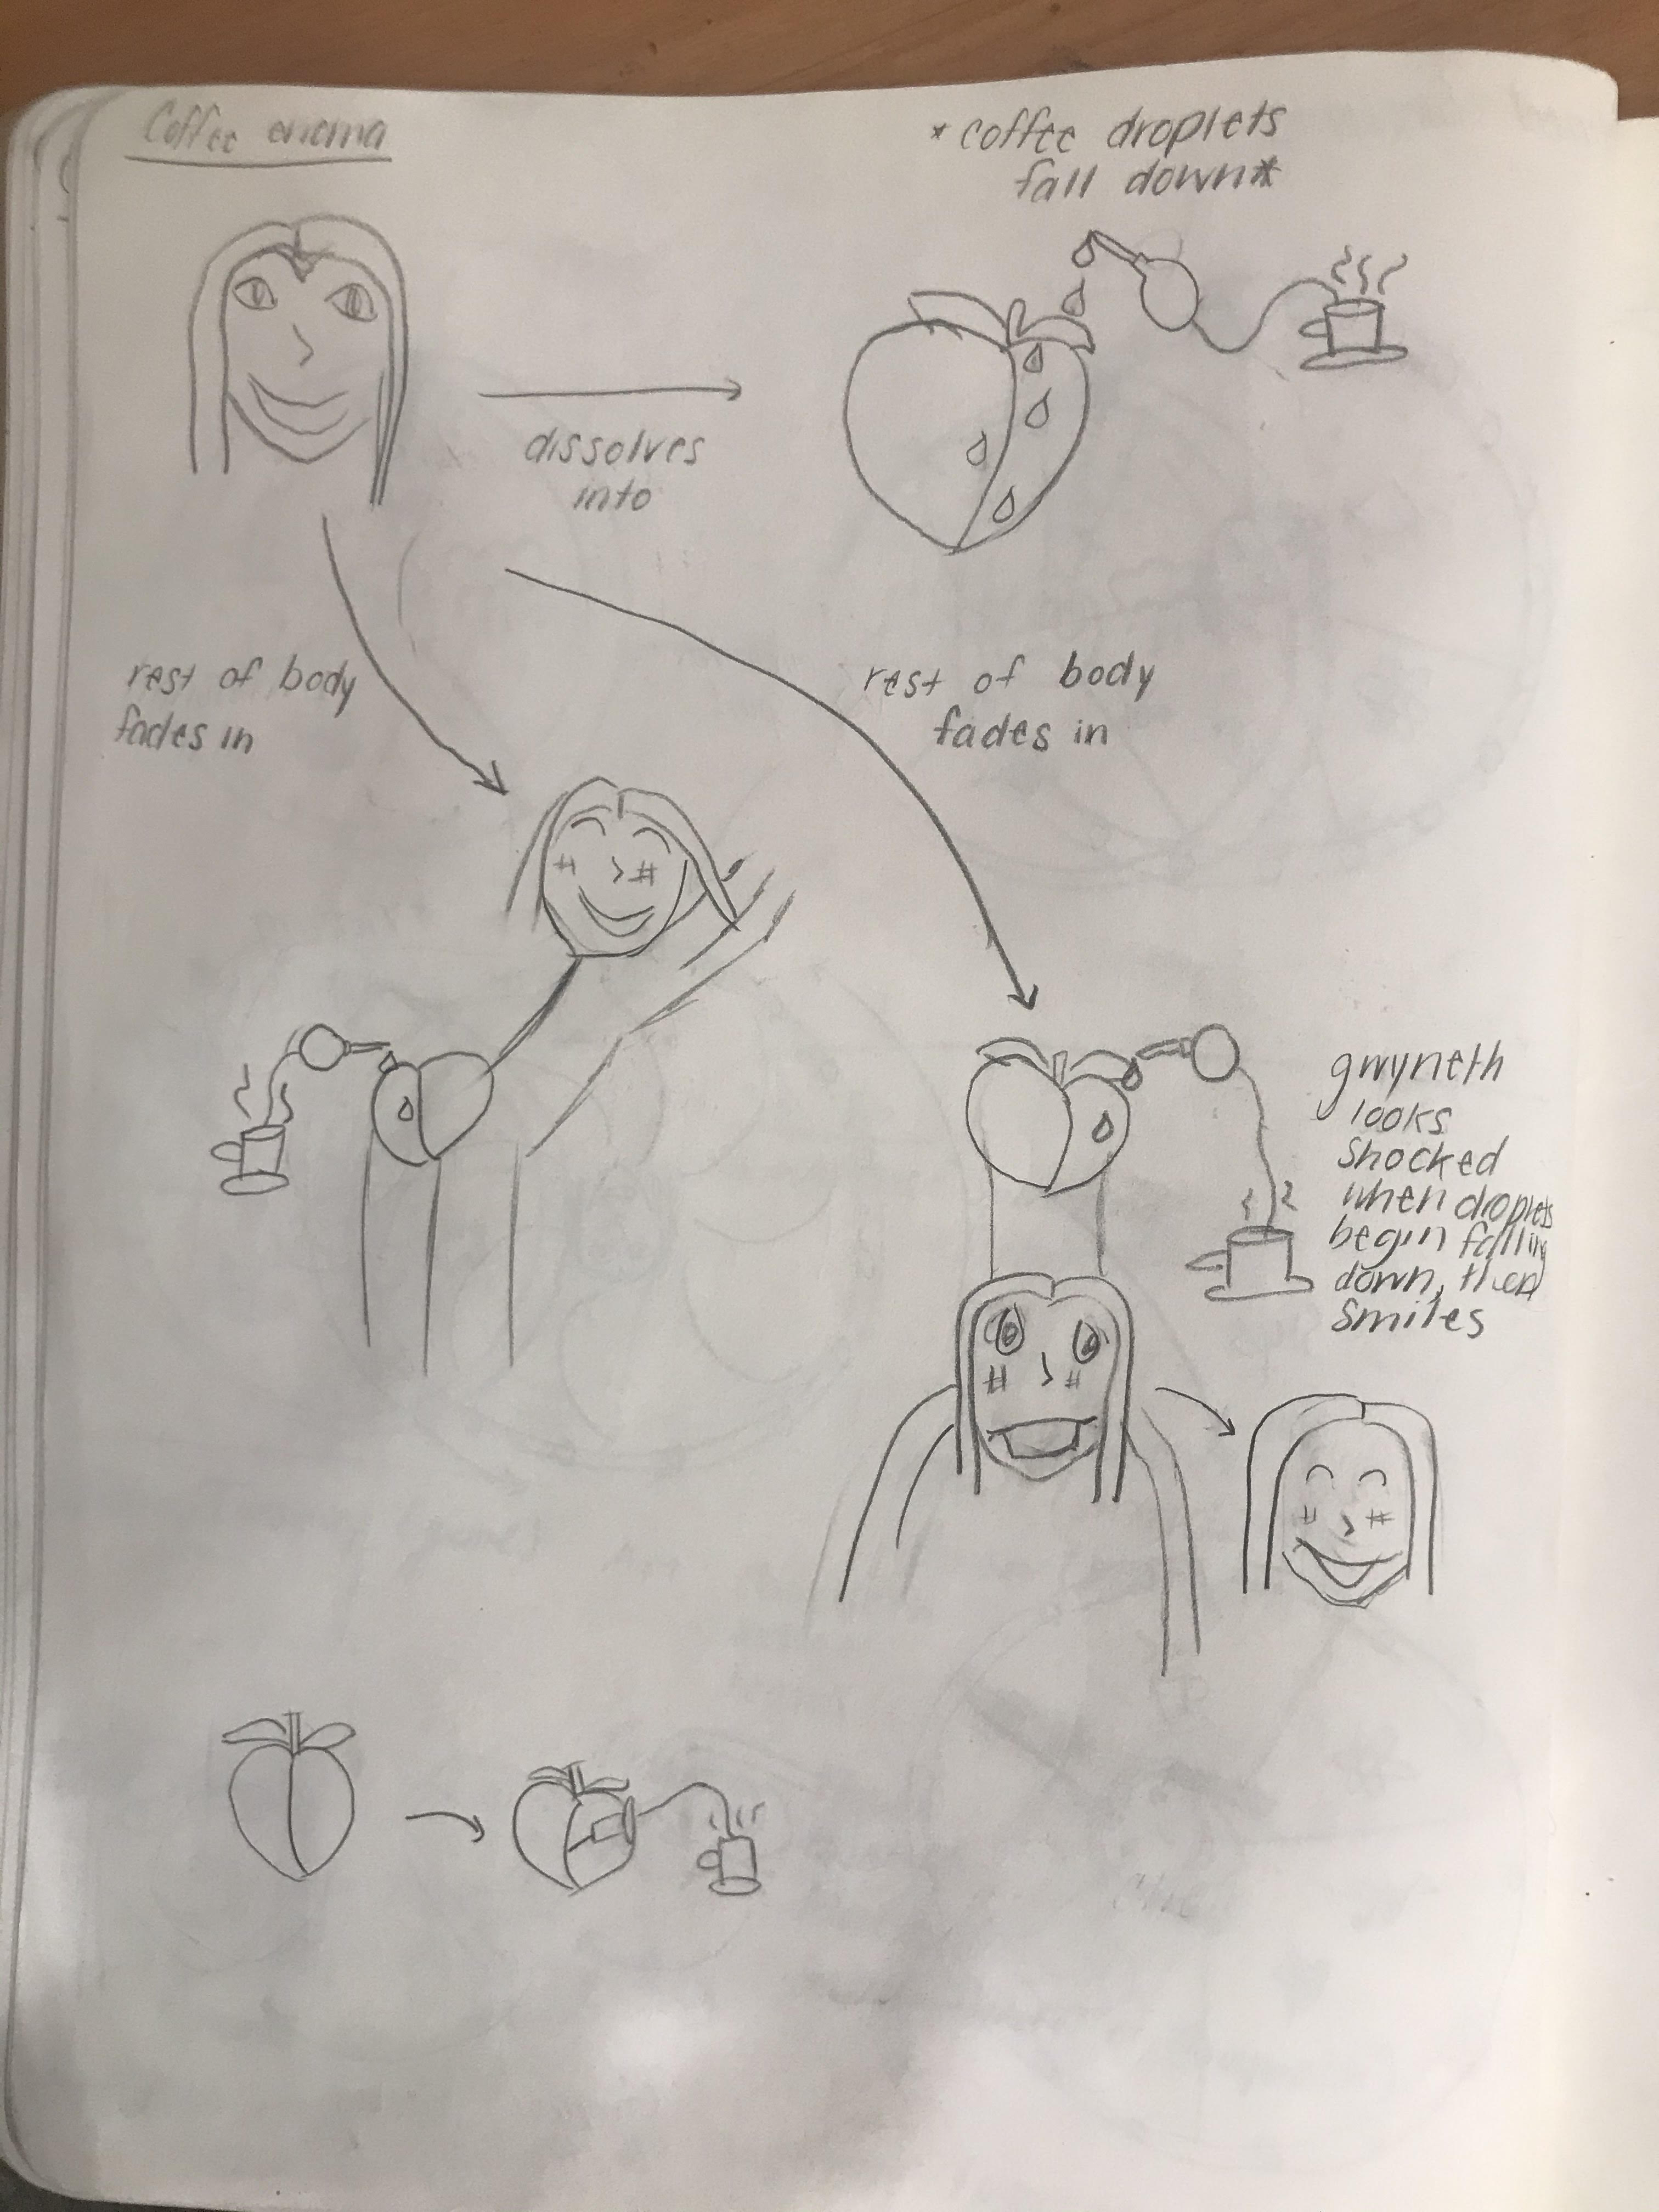 Coffee enema
*coffee droplets
fall down*
dissolves
into
rest of body
fades in
rest of body
fades in
gwyneth
looks
shocked
when droplets
begin falling
down, then
smiles